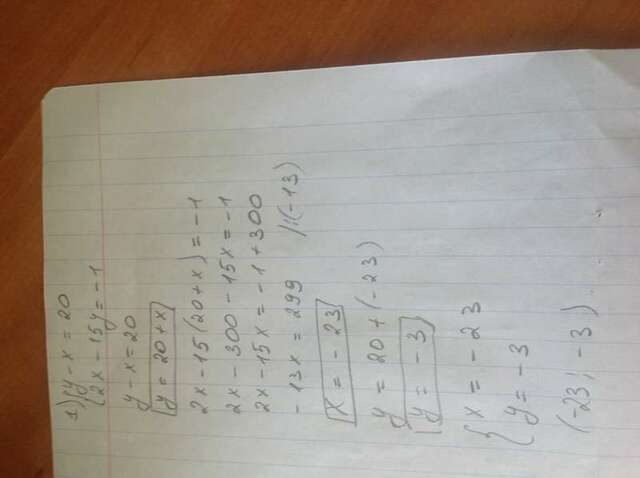 1) { y - x = 20
2x - 15y = -1
y - x = 20
y = 20 + x
2x - 15(20 + x) = -1
2x - 300 - 15x = -1
2x - 15x = -1 + 300
-13x = 299 /:(-13)
x = -23
y = 20 + (-23)
y = -3
{ x = -23
y = -3
(-23; -3)